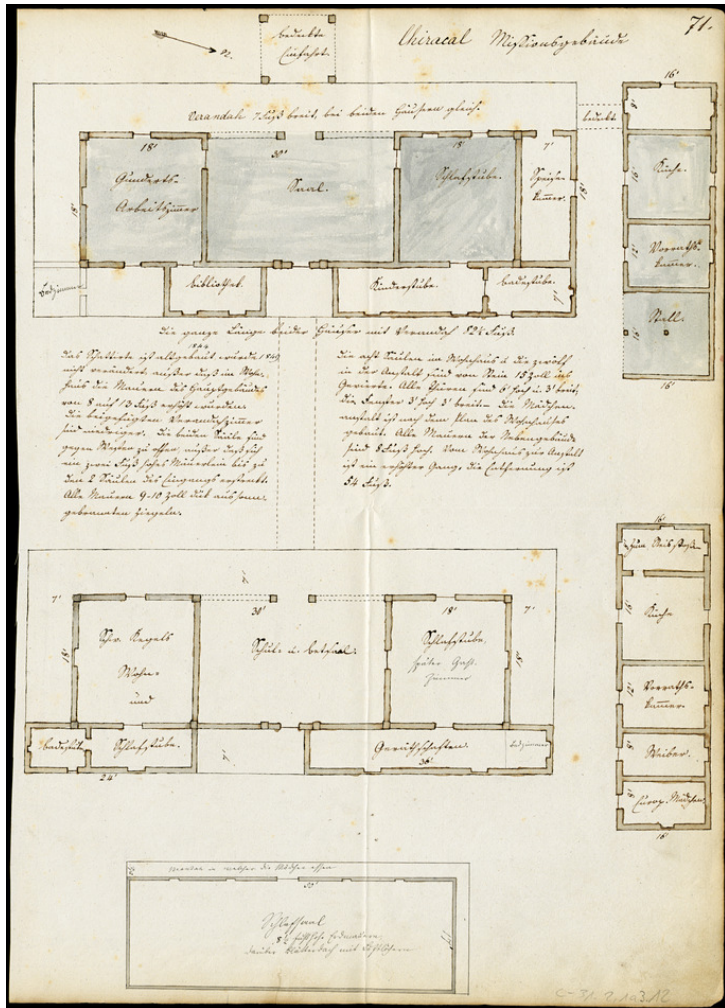 71.
Chiracal Missionsgebäude
bedeckte
Einfahrt.
N.
Verandah 7 Fuß breit, bei beiden Häusern gleich.
bedeckt
18'
30'
18'
7'
Gunderts-
Arbeitszimmer
Saal.
Schlafstube.
Speise-
kammer.
Badzimmer
Bibliothek.
Kinderstube.
Badestube.
16'
Küche.
Vorraths-
kammer.
Stall.
16'
Die ganze Länge beider Häuser mit Verandah 82½ Fuß.
Das Schattirte ist altgebaut & wurde 1849
nicht verändert, außer daß im Wohn-
haus die Mauern des Hauptgebäudes
von 8 auf 13 Fuß erhöht wurden.
Die beigefügten Verandahzimmer
sind niedriger. Die beiden Säle sind
gegen Westen zu offen, außer daß sich
ein zwei Fuß hohes Mäuerlein bis zu
den 2 Säulen des Eingangs erstreckt.
Alle Mauern 9-10 Zoll dick aus sonn-
gebrannten Ziegeln.
Die acht Säulen im Wohnhaus & die zwölf
in der Anstalt sind von Stein 15 Zoll ins
Gevierte. Alle Thüren sind 6' hoch u. 3' breit,
die Fenster 3' hoch 3' breit. Die Mädchen-
anstalt ist nach dem Plan des Wohnhauses
gebaut. Alle Mauern der Nebengebäude
sind 8 Fuß hoch. Vom Wohnhaus zur Anstalt
ist ein erhöhter Gang. Die Entfernung ist
54 Fuß.
7'
30'
18'
7'
Schw. Kegels
Wohn-
und
Schule u. Betsaal.
Schlafstube.
später Gast-
zimmer
Badestube
Schlafstube.
Geräthschaften.
Badzimmer
24'
36'
16'
zum Reis stoßen
Küche
Vorraths-
kammer.
Weiber.
Europ. Mädchen
16'
in welcher die Mädchen essen
Schlafsaal